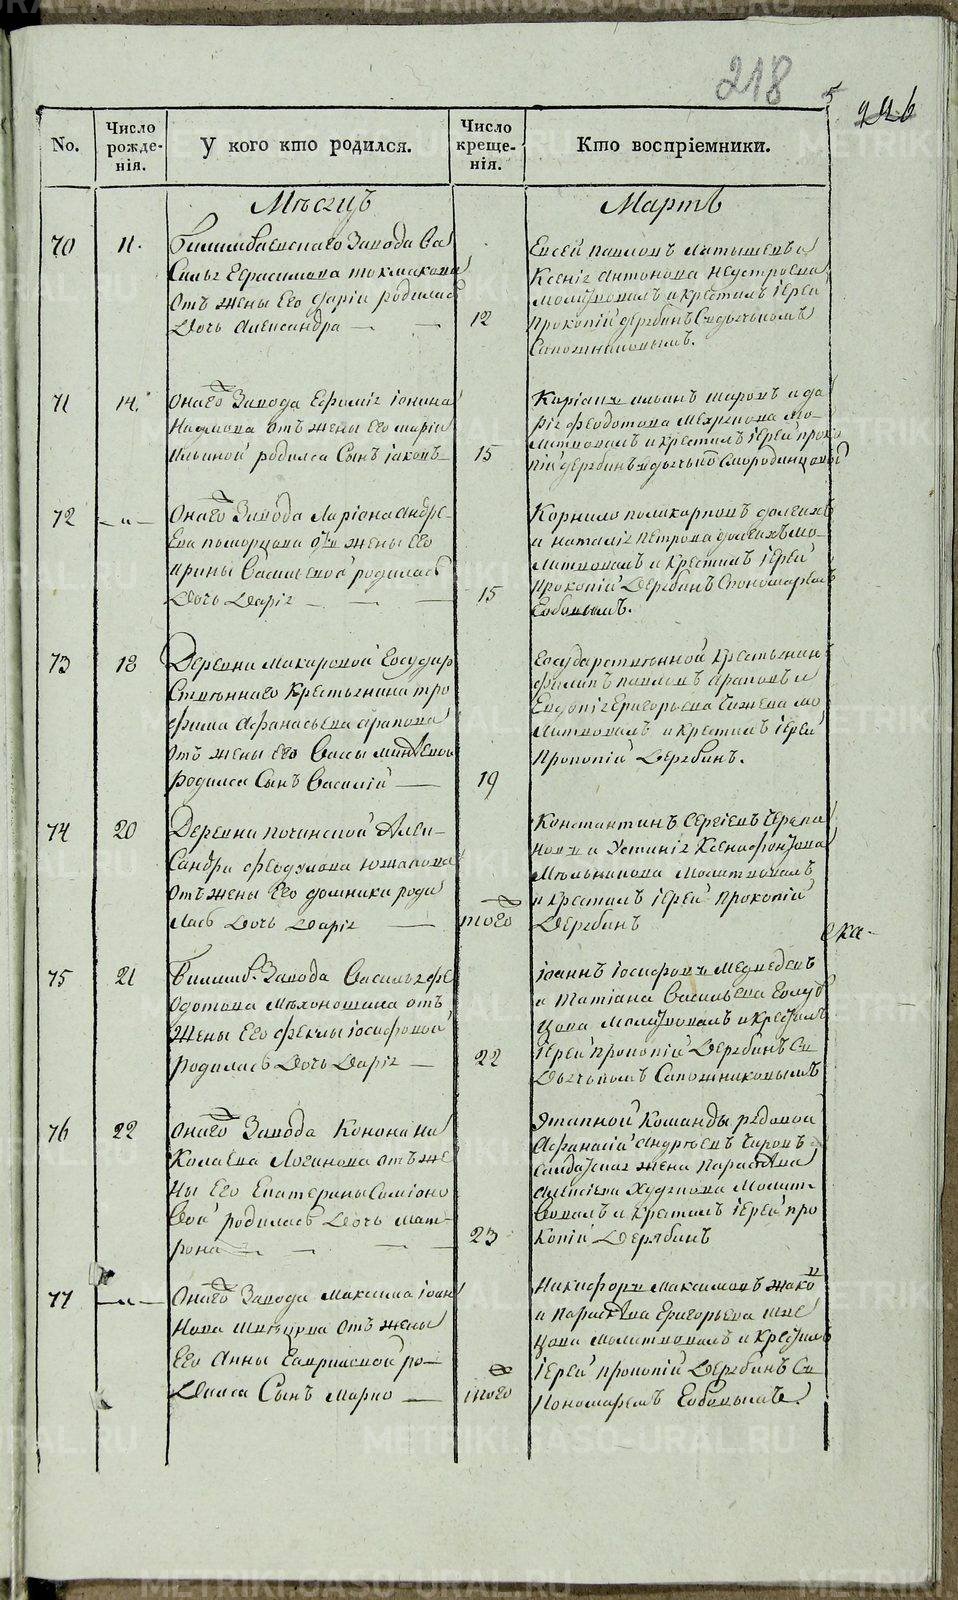 218
5
No.
Число рожденія.
У кого кто родился.
Число крещенія.
Кто воспріемники.
Мѣсяцъ
Мартъ
70
11.
Билимбаевскаго Завода Ва
силья Герасимова токмакова
отъ жены Его дарьи родилась
Дочь Александра
12
Евсей павловъ Латышевъ и
Ксенія Антонова Неустроева
Молитвовалъ и крестилъ Іерей
Прокопій дерябинъ Съдьячкомъ
Сапожниковымъ.
71
14.
Онаго Завода Ефимія іонина
Наумова отъ жены Его маріи
Ильиной родился Сынъ іаковъ
15
ильинъ шаровъ и да
рія федотова Мо
литвовалъ и крестилъ Іерей проко
пій дерябинъ Сдьячко Смородинцовой
72
Онаго Завода Ларіона Андре
ева поморцова отъ жены Его
ирины Васильевой родилась
Дочь Дарія
15
Корнило поликарповъ долгихъ
и наталія Петрова долгихъ мо
литвовалъ и Крестилъ Іерей
Прокопій Дерябинъ Спономаремъ
73
18
Деревни Макаровой Государ
ственнаго Крестьянина тро
фима Афанасьева арапова
отъ жены Его Вассы
родился Сынъ Василій
19
Государственной Крестьянинъ
филипъ павловъ Араповъ и
Евдокія Григорьева Чижева мо
литвовалъ и крестилъ Іерей
Прокопій Дерябинъ.
74
20
Деревни починской Алек
сандра федулова юшакова
отъ жены Его домники роди
лась Дочь Дарія
того
Константинъ Сергіевъ Черепа
новъ и Устинія Ксенофонтова
Мѣльникова Молитвовалъ
и крестилъ Іерей Прокопій
Дерябинъ
75
21
Билимб. Завода Василья фе
дотова Мѣхоношина отъ
жены Его феклы іосифовой
родилась Дочь Дарія
22
Іоаннъ Іосифовъ Медведевъ
и Татіана Васильева Голуб
цова Молитвовалъ и крестилъ
Іерей Прокопій Дерябинъ Съ
Дьячькомъ Сапожниковымъ
76
22
Онаго Завода Конона Ни
колаева Логинова отъ же
ны Его Екатерины Симіоно
вой родилась Дочь мат
рона
23
Этапной Команды рядовой
Афанасій Андреевъ
салдатская жена Параскева
Алексѣева Худякова Молит
вовалъ и Крестилъ Іерей про
копій Дерябинъ
77
Онаго Завода Максима іоан
нова отъ жены
Его Анны Гавриловой ро
дился Сынъ Марко
того
Никифоръ Максимовъ
и параскева Григорьева
цова молитвовалъ и крестилъ
Іерей прокопій Дерябинъ Съ
Пономаремъ